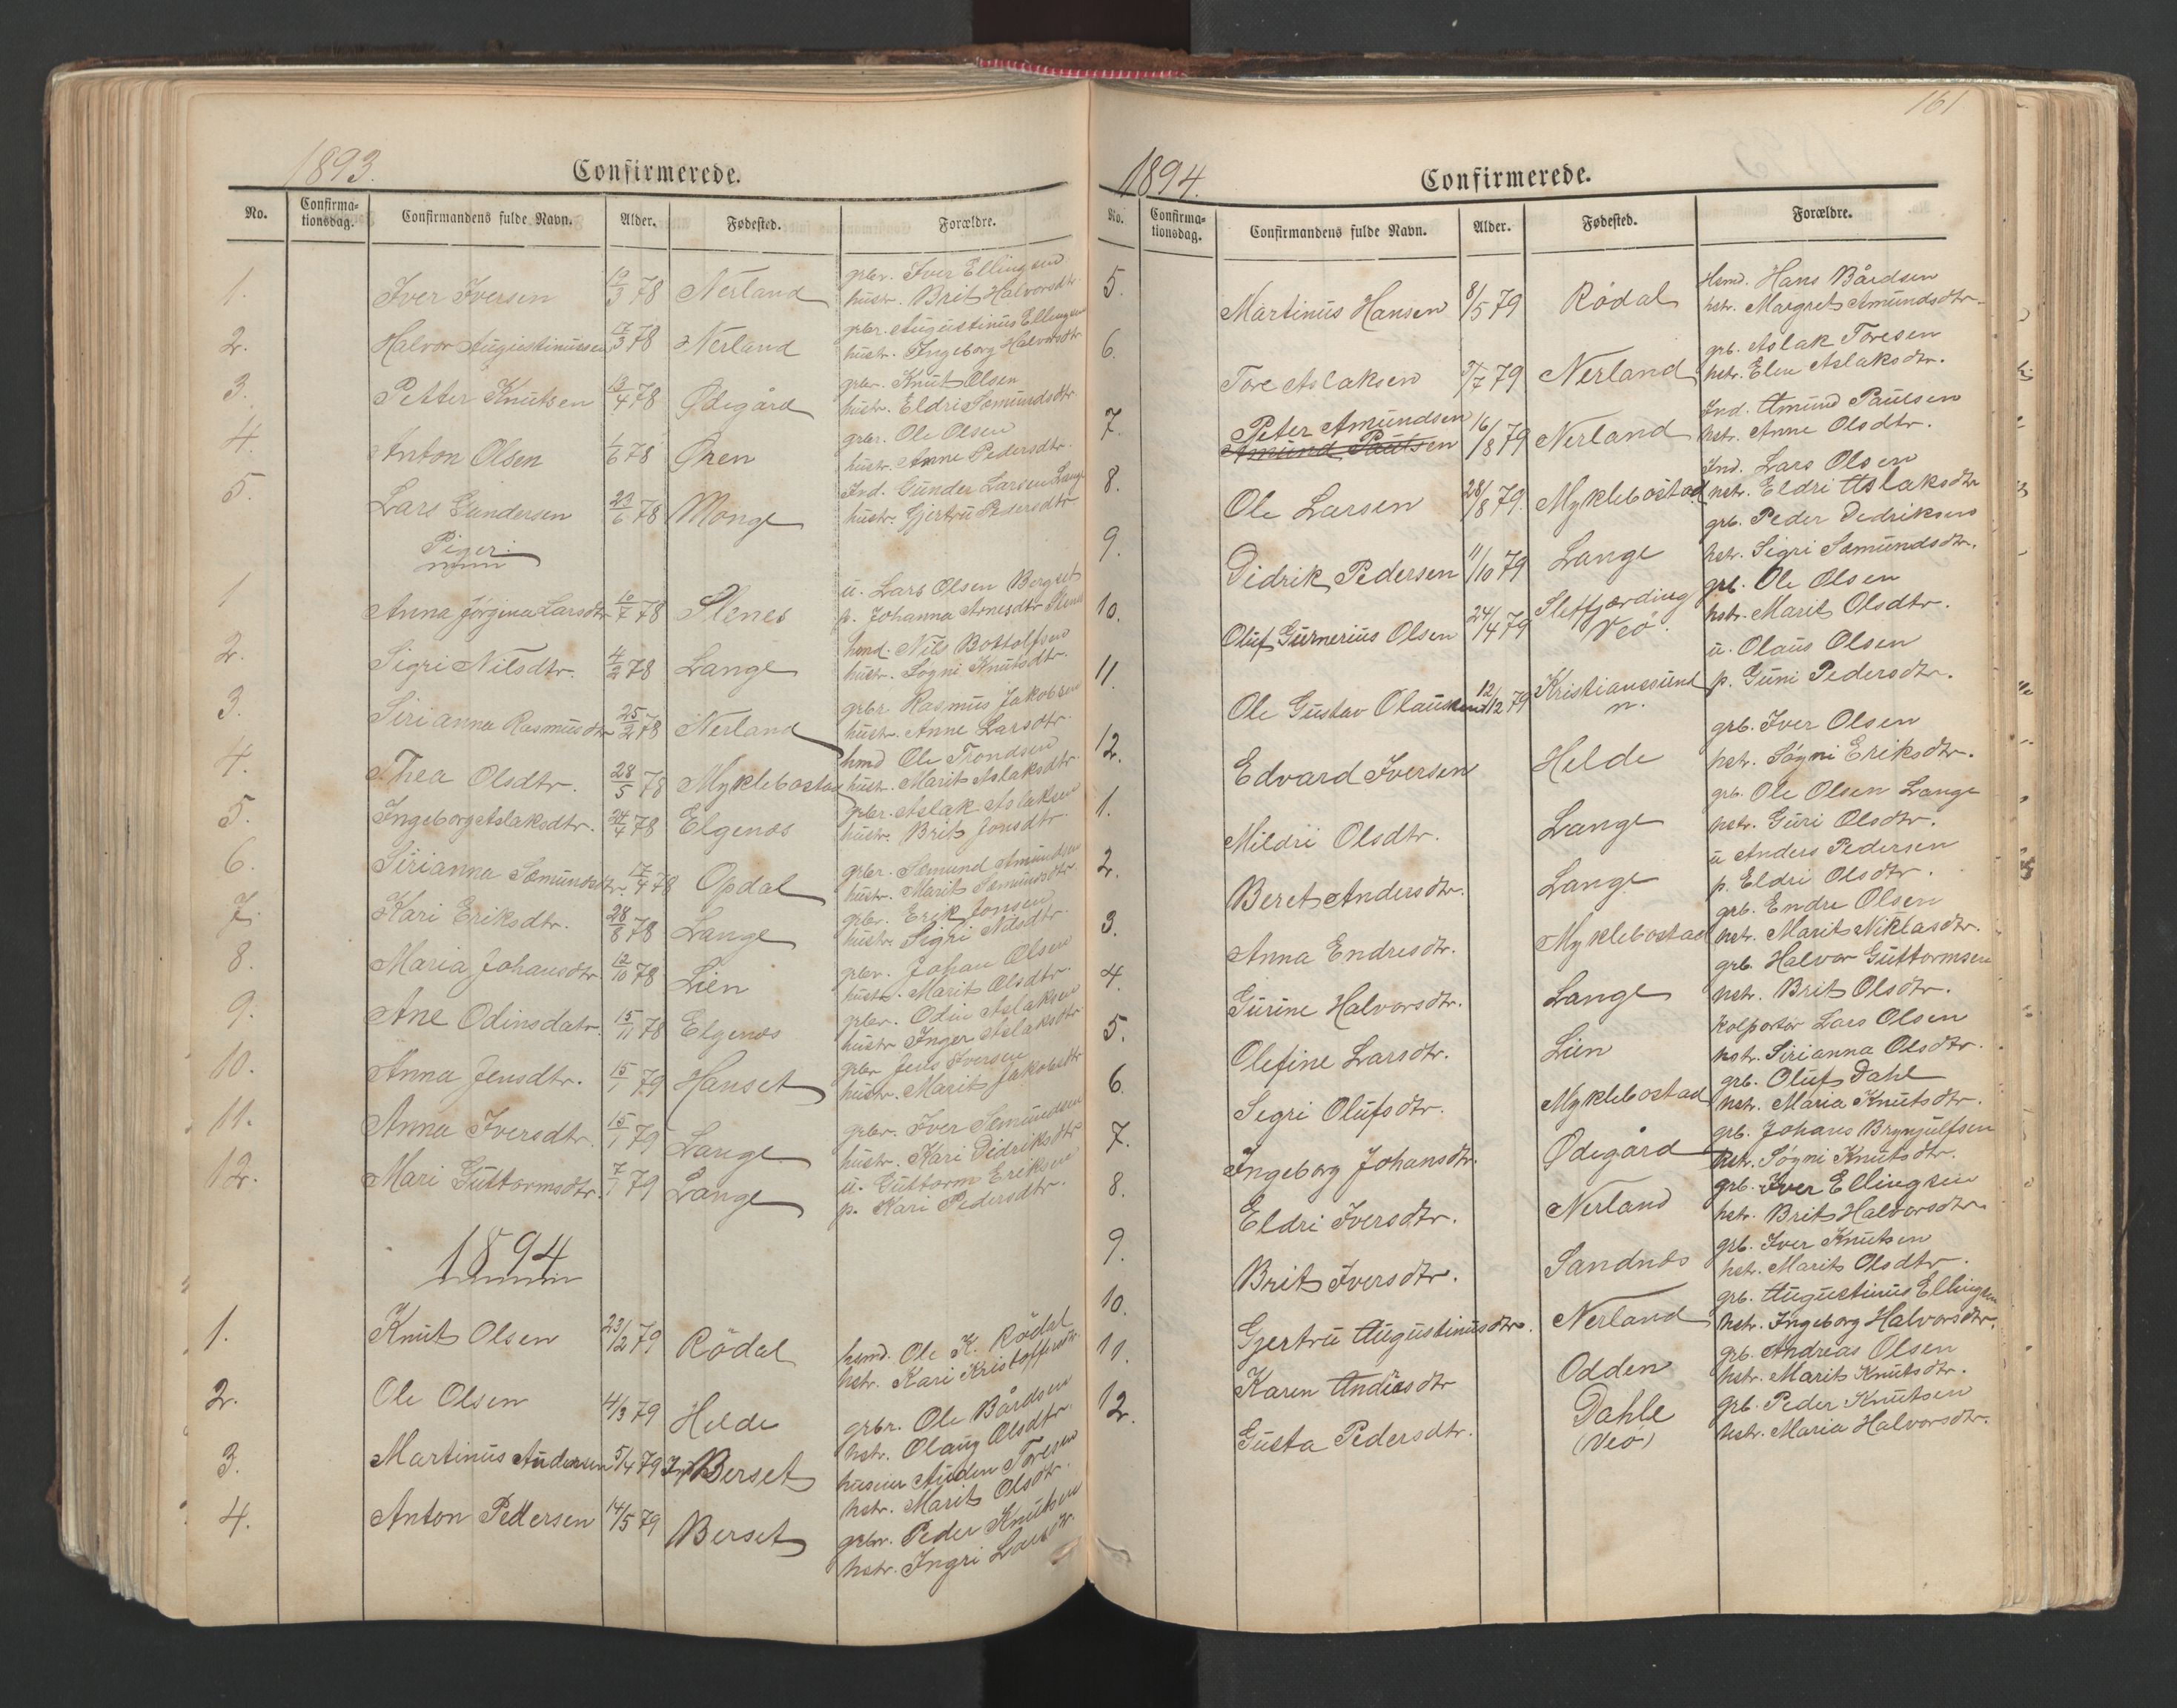 1893.
Confirmerede.
No. Confirma-tionsdag. Confirmandens fulde Navn. Alder. Fødested. Forældre.
1. Iver Iversen 10/3 78 Nerland gbr. Iver Ellingsen
hustr. Brit Halvorsdtr.
2. Halvor Augustinussen 7/3 78 Nerland gbr. Augustinus Ellingsen
hustr. Ingeborg Halvorsdtr
3. Petter Knutsen 13/4 78 Ødegård gbr. Knut Olsen
hustr. Eldri Sæmundsdtr
4. Anton Olsen 1/6 78 Øren gbr. Ole Olsen
hustr. Anne Pedersdtr.
5. Lars Gundersen 29/6 78 Monge Ind. Gunder Larsen Lange
hustr. Gjertru Pedersdtr.
Piger:
1 Anna Jørgina Larsdtr 10/7 78 Stenes u. Lars Olsen Bergset
p. Johanna Arnesdtr Stenes
2. Sigri Nilsdtr. 4/2 78 Lange hmd. Nils Bottolfsen
hustr. Søgni Knutsdtr.
3. Sirianna Rasmusdtr 25/2 78 Nerland gbr. Rasmus Jakobsen
hustr. Anne Larsdtr.
4. Thea Olsdtr. 28/5 78 Myklebostad hmd Ole Trondsen
hustr. Marit Aslaksdtr.
5. Ingeborg Aslaksdtr. 24/4 78 Elgenæs gbr. Aslak Aslaksen
hustr. Brit Jonsdtr.
6. Sirianna Sæmundsdtr. 17/4 78 Opdal gbr. Sæmund Amundsen
hustr. Marit Sæmundsdtr
7. Kari Eriksdtr. 28/8 78 Lange gbr. Erik Jonsen
hustr. Sigri Nilsdtr.
8. Maria Johansdtr 12/10 78 Lien gbr. Johan Olsen
hustr. Marit Olsdtr.
9. Ane Odinsdatr. 15/11 78 Elgenæs gbr. Odin Aslaksen
hustr Inger Aslaksdtr
10. Anna Jensdtr. 15/1 79 Hanset gbr Jens Iversen
hustr. Marit Jakobsdtr
11. Anna Iversdtr. 15/1 79 Lange gbr. Iver Sæmundsen
hustr. Kari Didriksdtr
12. Mari Guttormsdtr. 7/1 79 Lange u. Guttorm Eriksen
p. Kari Pedersdtr.
1894
1. Knut Olsen 23/12 79 Rödal hsmd. Ole K. Rödal
hstr. Kari Kristoffersdtr.
2. Ole Olsen 4/3 79 Helde grbr. Ole Bårdsen
hstr. Olaug Olsdtr.
3. Martinus Audensen 5/4 79 Berset huseier Auden Toresen
hstr. Marit Olsdtr.
4. Anton Pettersen 14/5 79 Berset grbr. Peder Knutsen
hstr. Ingri Larsdtr.
161
1894.
Confirmerede.
No. Confirma-tionsdag. Confirmandens fulde Navn. Alder. Fødested. Forældre.
5. Martinus Hansen 8/5 79 Rödal Hsmd. Hans Bårdsen
hstr. Margret Amundsdtr.
6. Tore Aslaksen 3/7 79 Nerland grb. Aslak Toresen
hstr. Elen Aslaksdtr.
7. Peter Amundsen 16/8 79 Nerland Ind. Amund Paulsen
Amund Paulsen hstr. Anne Olsdtr.
8. Ole Larsen 28/8 79. Myklebostad Ind. Lars Olsen
hstr. Eldri Aslaksdtr
9. Didrik Pedersen 11/10 79 Lange grb. Peder Dedriksen
hstr. Sigri Sæmundsdtr.
10. Oluf Gurnerius Olsen 24/14 79 Sletfjærding Veö. grb. Ole Olsen
hstr. Marit Olsdtr.
11. Ole Gustav Olaussen 12/12 79 Kristianssund n. u. Olaus Olsen
p. Guni Pedersdtr.
12. Edvard Iversen Helde grb. Iver Olsen
hstr. Søgni Eriksdtr.
1. Mildri Olsdtr. Lange grb. Ole Olsen Lange
hstr. Guri Olsdtr.
2. Beret Andersdtr. Lange u Anders Pedersen
p. Eldri Olsdtr.
3. Anna Endresdtr. Myklebostad grb. Endre Olsen
hstr. Marit Niklasdtr.
4. Gurine Halvorsdtr. Lange grb. Halvor Guttormsen
hstr. Brit Olsdtr.
5. Olefine Larsdtr. Lien Kolportör Lars Olsen
hstr. Sirianna Olsdtr.
6. Segri Olufsdtr. Myklebostad grb. Oluf Dahl
hstr. Maria Knutsdtr.
7. Ingeborg Johansdtr. Ødegård grb. Johans Brynjulfsen
hstr. Søgni Knutsdtr.
8. Eldri Iversdtr. Nerland grb. Iver Ellingsen
hstr. Brit Halvorsdtr.
9. Brit Iversdtr. Sandnæs grb. Iver Knutsen
hstr. Marit Olsdtr.
10. Gjertru Augustinusdtr. Nerland grb. Augustinus Ellingsen
hstr. Ingeborg Halvorsdtr.
11. Karen Andreasdtr Odden grb. Andreas Olsen
hstr. Marit Knutsdtr.
12. Gusta Pedersdtr. Dahle (Veö) grb. Peder Knutsen
hstr. Maria Halvorsdtr.